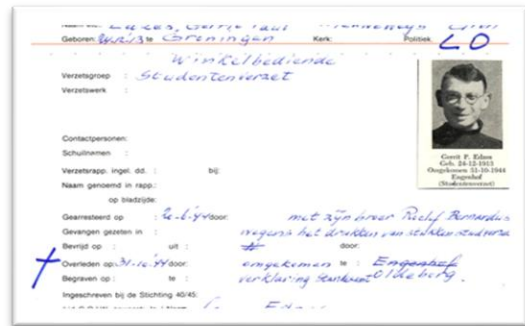 Geboren: te Groningen Kerk: Politiek LO
Winkelbediende
Verzetsgroep : Studentenverzet
Verzetswerk :
Contactpersonen:
Schuilnamen :
Verzetsrapp. ingel. dd. : bij:
Naam genoemd in rapp.:
op bladzijde:
Gearresteerd op door: met zijn broer Roelf Bernardus
Gevangen gezeten in : wegens het drukken van
Bevrijd op : uit : door:
Overleden op: 31-10-44 door: omgekomen te : Engenhof
Begraven op : te : verklaring Oldeberg.
Ingeschreven bij de Stichting 40/45:
Gerrit F. Edzes
Geb. 24-12-1913
Omgekomen 31-10-1944
Engenhof
(Studentenverzet)